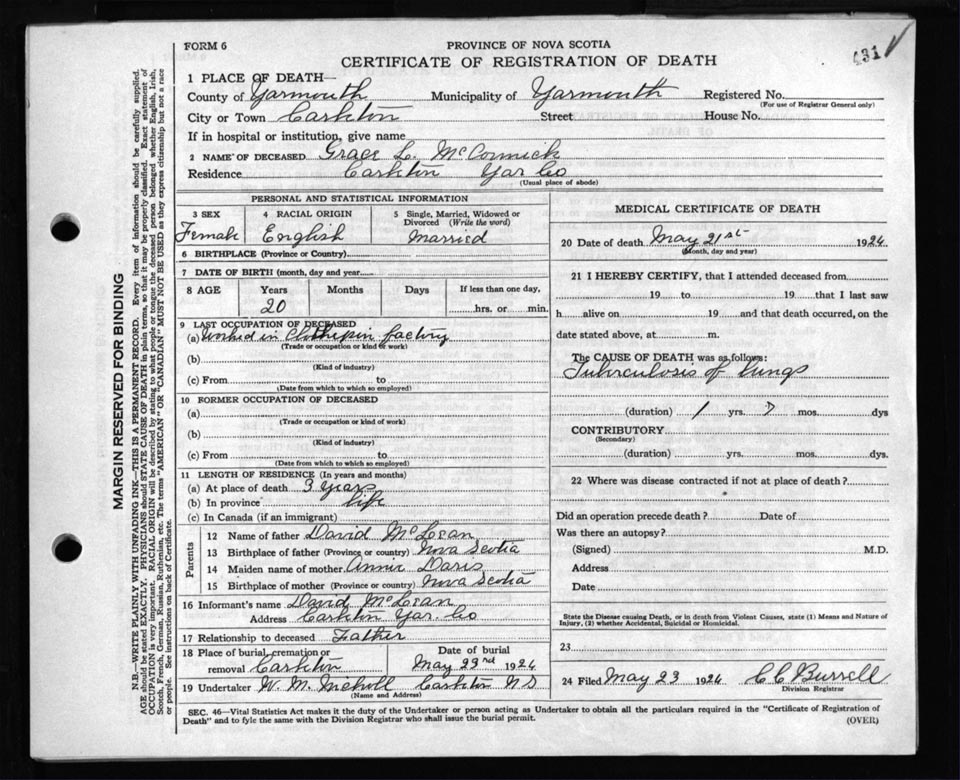 FORM 6
PROVINCE OF NOVA SCOTIA
431
CERTIFICATE OF REGISTRATION OF DEATH
1 PLACE OF DEATH—
County of Yarmouth Municipality of Yarmouth Registered No.
(For use of Registrar General only)
City or Town Carleton Street House No.
If in hospital or institution, give name
2 NAME OF DECEASED Grace L. McCormick
Residence Carleton Yar Co
(Usual place of abode)
PERSONAL AND STATISTICAL INFORMATION
3 SEX 4 RACIAL ORIGIN 5 Single, Married, Widowed or Divorced (Write the word)
Female English Married
6 BIRTHPLACE (Province or Country)
7 DATE OF BIRTH (month, day and year
8 AGE Years Months Days If less than one day,
20 hrs. or min.
9 LAST OCCUPATION OF DECEASED
(a) Worked in Clothespin factory
(Trade or occupation or kind of work)
(b)
(Kind of industry)
(c) From to
(Date from which to which so employed)
10 FORMER OCCUPATION OF DECEASED
(a)
(Trade or occupation or kind of work)
(b)
(Kind of industry)
(c) From to
(Date from which to which so employed)
11 LENGTH OF RESIDENCE (In years and months)
(a) At place of death 3 years
(b) In province life
(c) In Canada (if an immigrant)
Parents
12 Name of father David McLean
13 Birthplace of father (Province or country) Nova Scotia
14 Maiden name of mother Annie Davis
15 Birthplace of mother (Province or country) Nova Scotia
16 Informant's name David McLean
Address Carleton Yar. Co
17 Relationship to deceased Father
18 Place of burial, cremation or removal Carleton Date of burial May 23rd 1924
19 Undertaker W. M. Nicholl Carleton N S
(Name and Address)
MEDICAL CERTIFICATE OF DEATH
20 Date of death May 21st 1924
(Month, day and year)
21 I HEREBY CERTIFY, that I attended deceased from
19 to 19 that I last saw
h alive on 19 and that death occurred, on
date stated above, at m.
The CAUSE OF DEATH was as follows:
Tuberculosis of Lungs
(duration) 1 yrs. 7 mos. dys
CONTRIBUTORY
(Secondary)
(duration) yrs. mos. dys.
22 Where was disease contracted if not at place of death?
Did an operation precede death? Date of
Was there an autopsy?
(Signed) M.D.
Address
Date
State the Disease causing Death, or in death from Violent Causes, state (1) Means and Nature of
Injury, (2) whether Accidental, Suicidal or Homicidal.
23
24 Filed May 23 1924 C C Burrell
Division Registrar
SEC. 46—Vital Statistics Act makes it the duty of the Undertaker or person acting as Undertaker to obtain all the particulars required in the "Certificate of Registration of
Death" and to fyle the same with the Division Registrar who shall issue the burial permit.
(OVER)
MARGIN RESERVED FOR BINDING
N.B.—WRITE PLAINLY WITH UNFADING INK—THIS IS A PERMANENT RECORD. Every item of information should be carefully supplied.
AGE should be stated EXACTLY. PHYSICIANS should STATE CAUSE OF DEATH in plain terms, so that it may be properly classified. Exact statement of
OCCUPATION is very important. RACIAL ORIGIN will be described by stating to what people or tongue the deceased person belonged whether English, Irish,
Scotch, French, German, Russian, Ruthenian, etc. The terms "AMERICAN" OR "CANADIAN" MUST NOT BE USED as they express citizenship but not a race
or people. See instructions on back of Certificate.